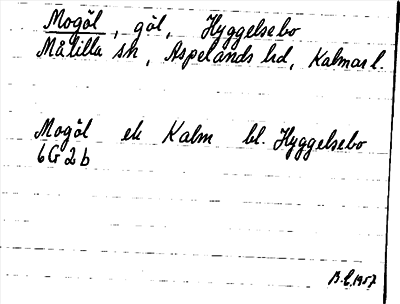 Mogöl, göl, Hyggelsebo
Målilla sn, Aspelands hd, Kalmar l.
Mogöl ek Kalm bl. Hyggelsebo
6G2b
B.L. 1957